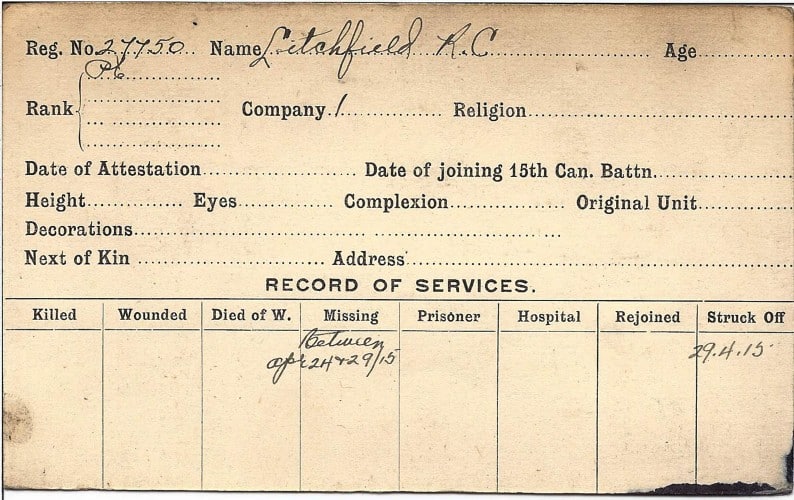 Reg. No. 27750 Name Litchfield R.C Age
Pte
Rank Company 1 Religion
Date of Attestation Date of joining 15th Can. Battn.
Height Eyes Complexion Original Unit
Decorations
Next of Kin Address
RECORD OF SERVICES.
Killed Wounded Died of W. Missing Prisoner Hospital Rejoined Struck Off
between 29.4.15
apr 24 & 29/15